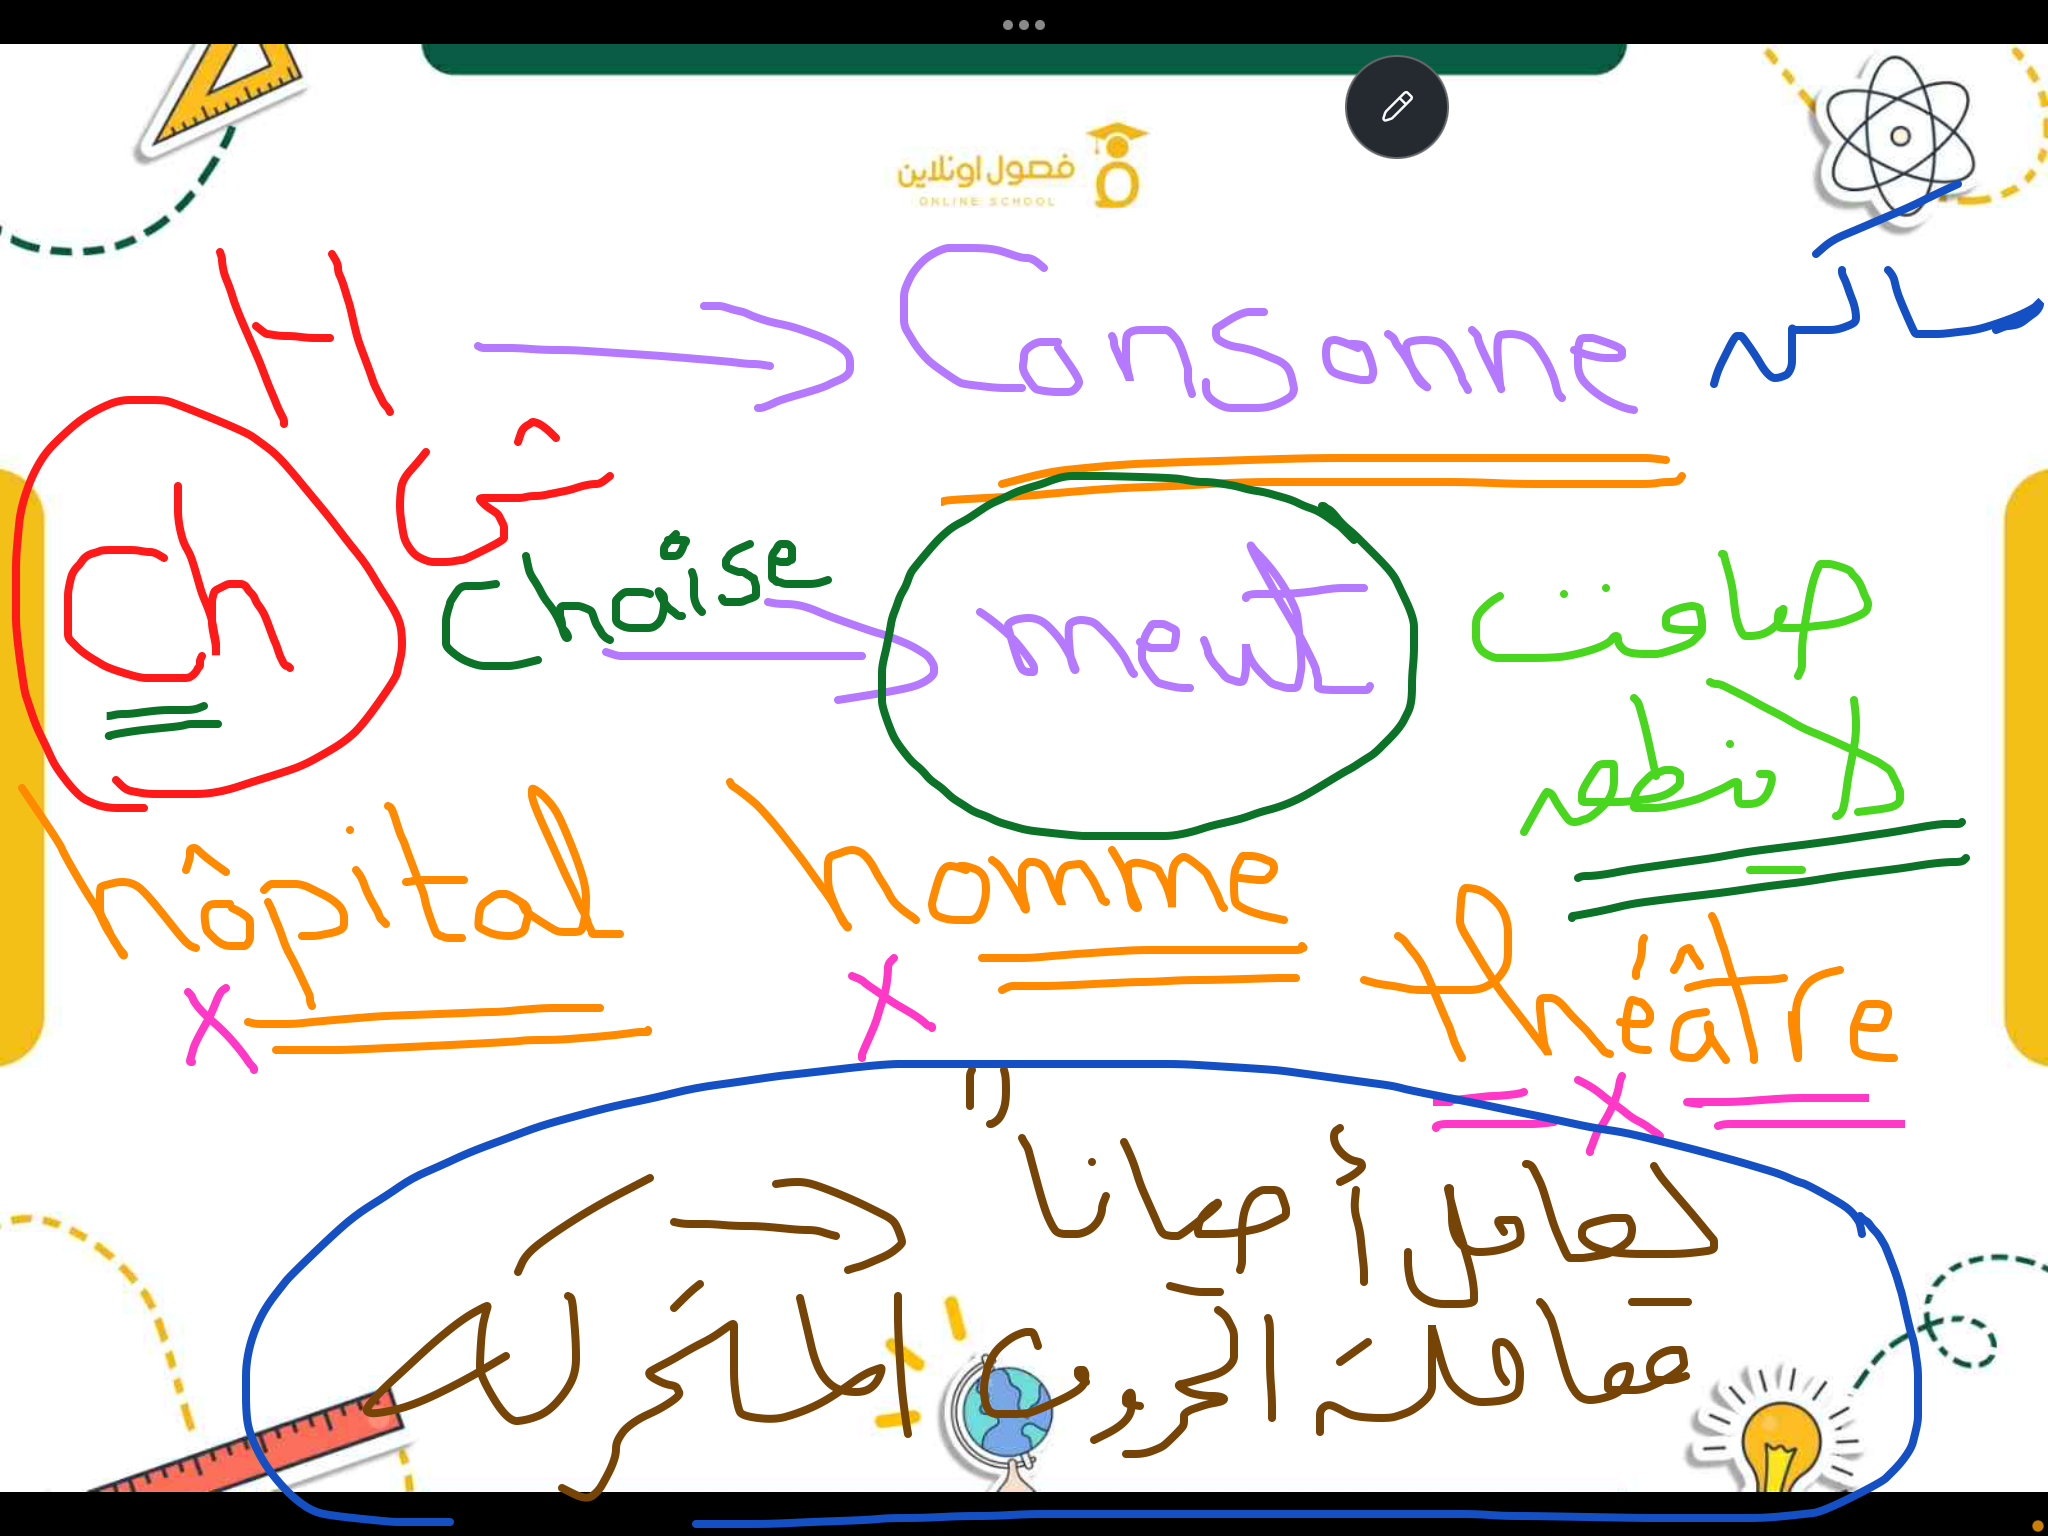 فصول اونلاين
ONLINE SCHOOL
H → Consonne ساكن
ch ش chaise → muet صامت
لا ننطقه
hôpital homme théâtre
يعامل أحيانا
معاملة الحروف المتحركة